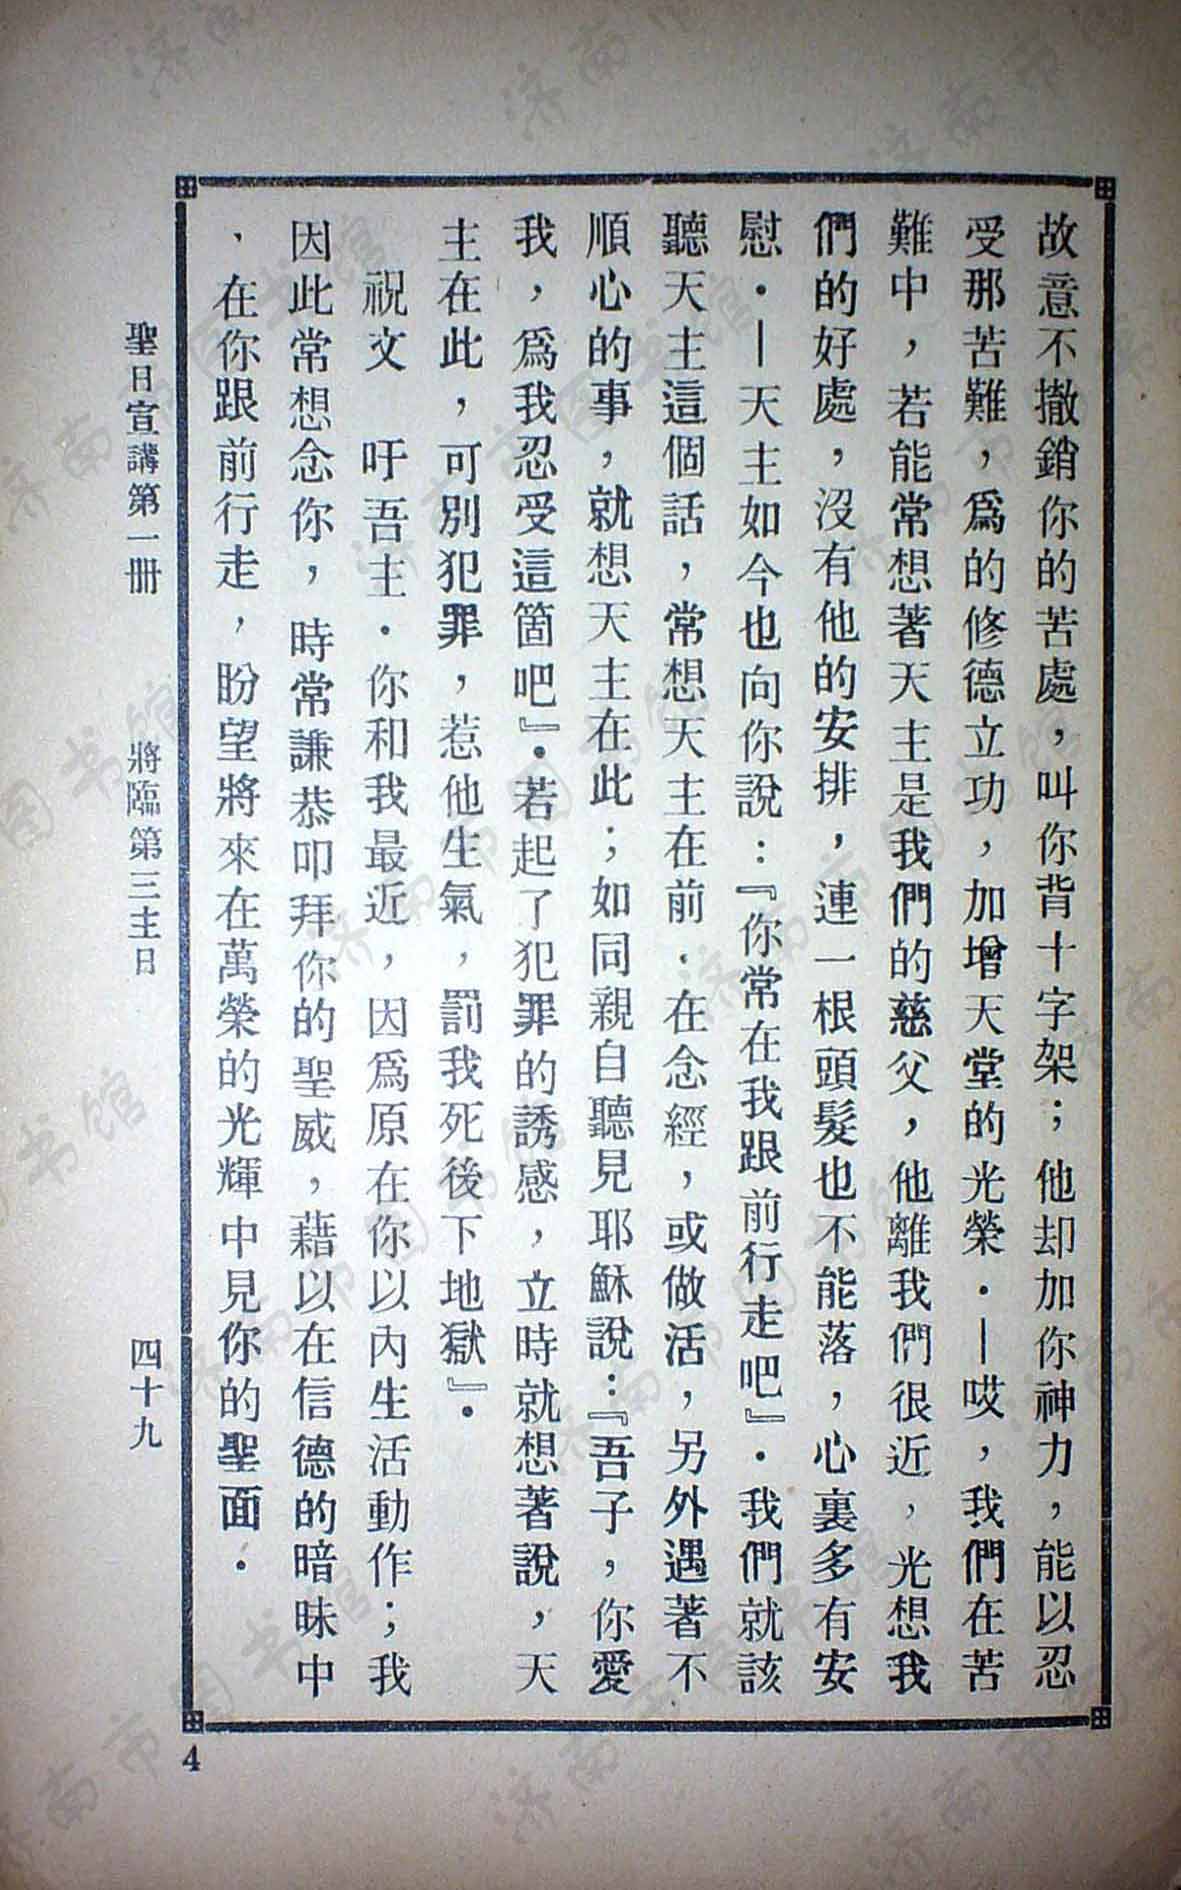 故意不撤銷你的苦處，叫你背十字架；他却加你神力，能以忍
受那苦難，爲的修德立功，加增天堂的光榮．—哎，我們在苦
難中，若能常想著天主是我們的慈父，他離我們很近，光想我
們的好處，沒有他的安排，連一根頭髮也不能落，心裏多有安
慰．—天主如今也向你說：『你常在我跟前行走吧』．我們就該
聽天主這個話，常想天主在前．在念經，或做活，另外遇著不
順心的事，就想天主在此；如同親自聽見耶穌說：『吾子，你愛
我，爲我忍受這箇吧』．若起了犯罪的誘感，立時就想著說，天
主在此，可別犯罪，惹他生氣，罰我死後下地獄』．
祝文　吁吾主．你和我最近，因爲原在你以內生活動作；我
因此常想念你，時常謙恭叩拜你的聖威，藉以在信德的暗昧中
，在你跟前行走，盼望將來在萬榮的光輝中見你的聖面．
聖日宣講第一册　將臨第三主日　四十九
4
济南市图书馆